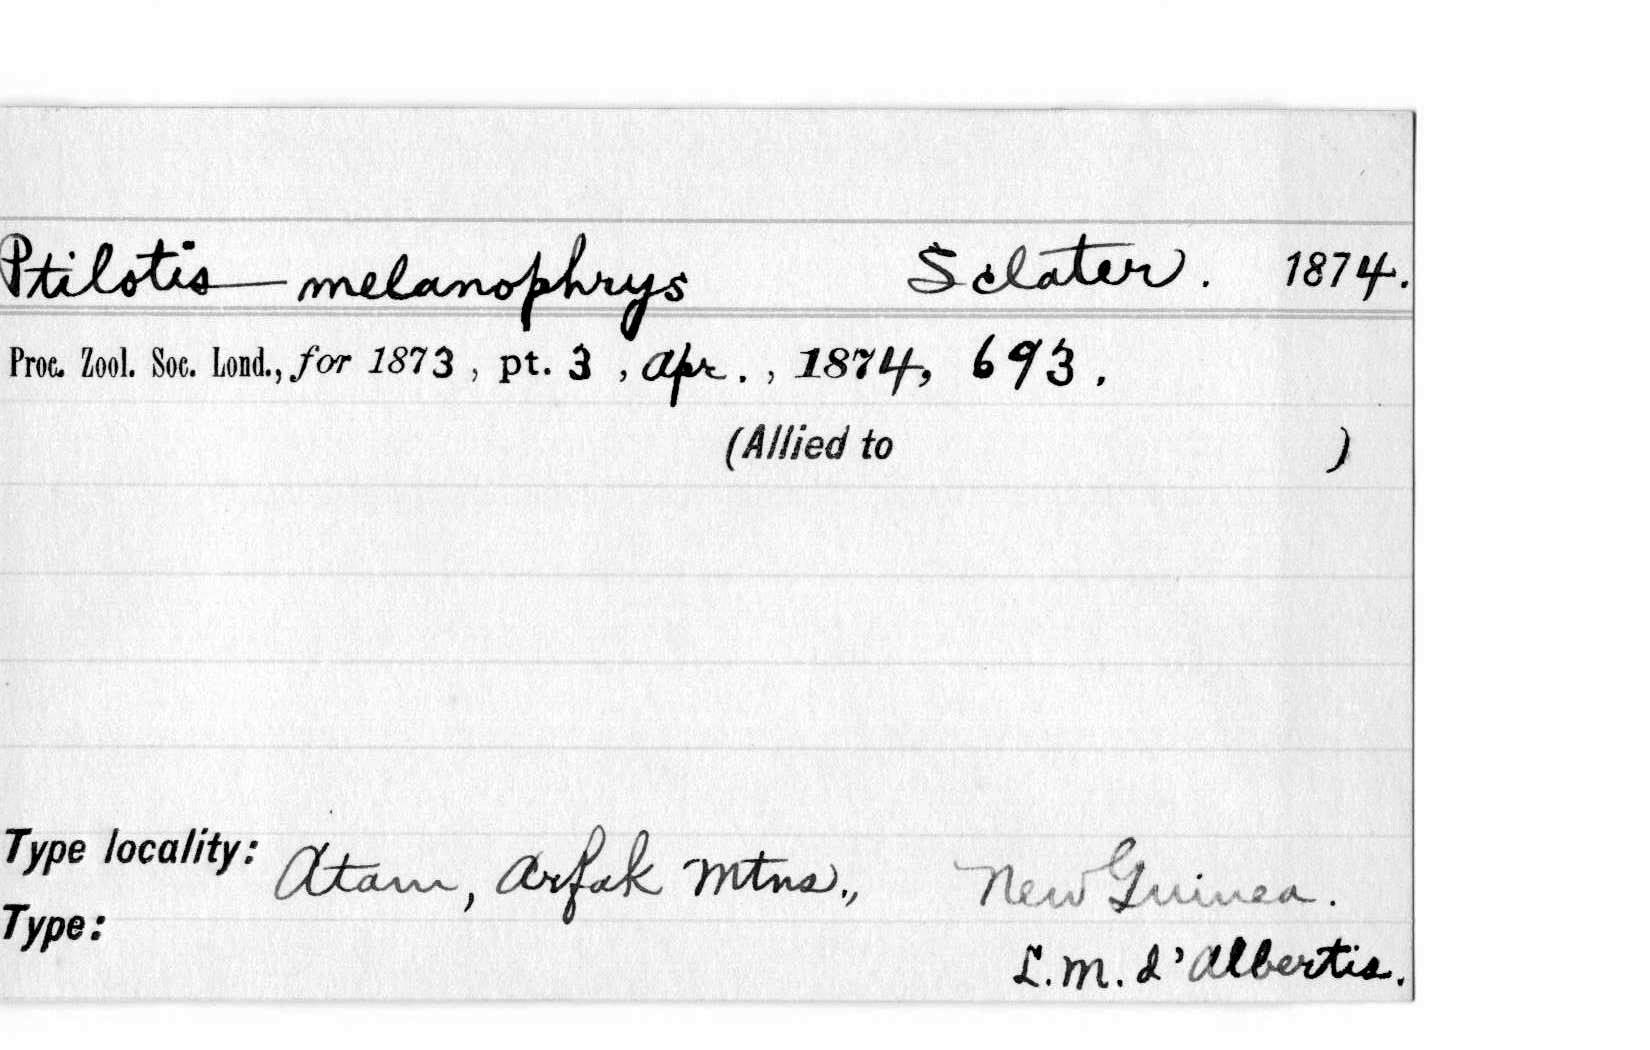 Ptilotis melanophrys Sclater. 1874.
Proc. Zool. Soc. Lond., for 1873, pt. 3, Apr., 1874, 693.
(Allied to )
Type locality: Atam, Arfak Mtns., New Guinea.
Type:
L. M. d'Albertis.